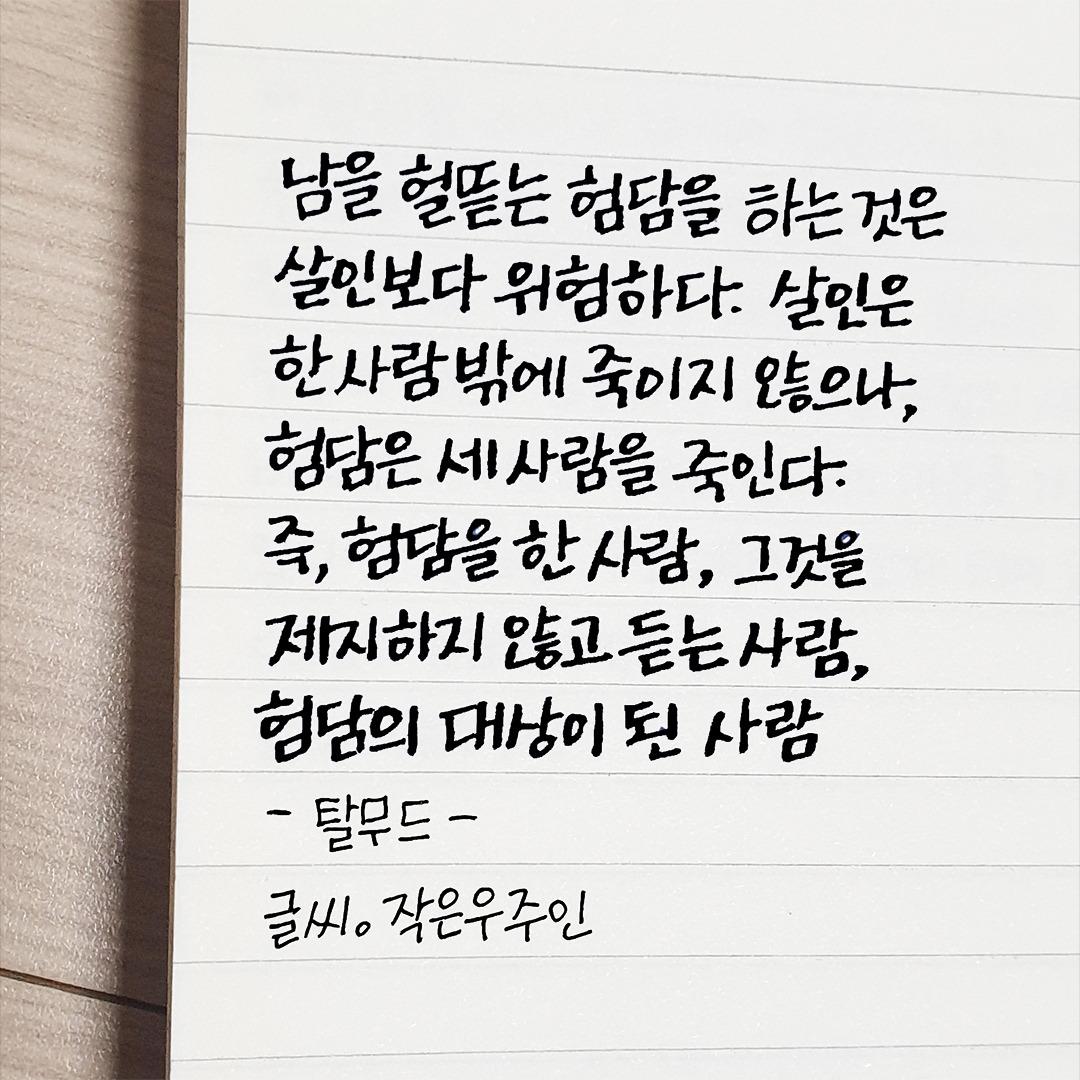 남을 헐뜯는 험담을 하는것은
살인보다 위험하다. 살인은
한사람밖에 죽이지 않으나,
험담은 세사람을 죽인다.
즉, 험담을 한 사람, 그것을
제지하지 않고 듣는 사람,
험담의 대상이 된 사람
- 탈무드 -
글씨。작은우주인